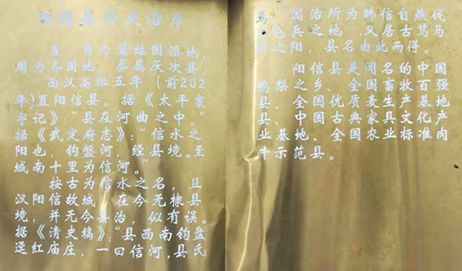 阳信县历史沿革
夏、商为蒲姑国领地，
周为齐国地，秦属厌次县。
西汉高祖五年（前202
年)置阳信县。据《太平寰
宇记》："县在河曲之中。"
据《武定府志》："信水之
阳也，钩盘河，经县境。至
城南十里为信河。"
按古为信水之名，且
汉阳信故城，在今无棣县
境，并无今县治，似有误。
据《清史稿》："县西南钩盘
迳红庙庄，一曰信河，县氏
焉。"因治所为韩信自燕代
屯兵之地，又居古笃马
河之阳，县名由此而得。
阳信县是闻名的中国
鸭梨之乡、全国畜牧百强
县、全国优质麦生产基地
县、中国古典家具文化产
业基地、全国农业标准肉
牛示范县。